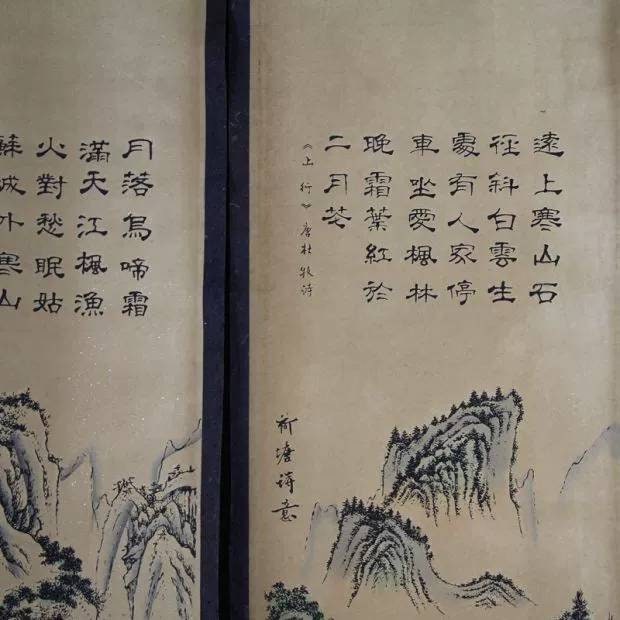 遠上寒山石
徑斜白雲生
處有人家停
車坐愛楓林
晚霜葉紅於
二月花
《上行》唐杜牧诗
詩意
月落烏啼霜
滿天江楓漁
火對愁眠姑
蘇城外寒山